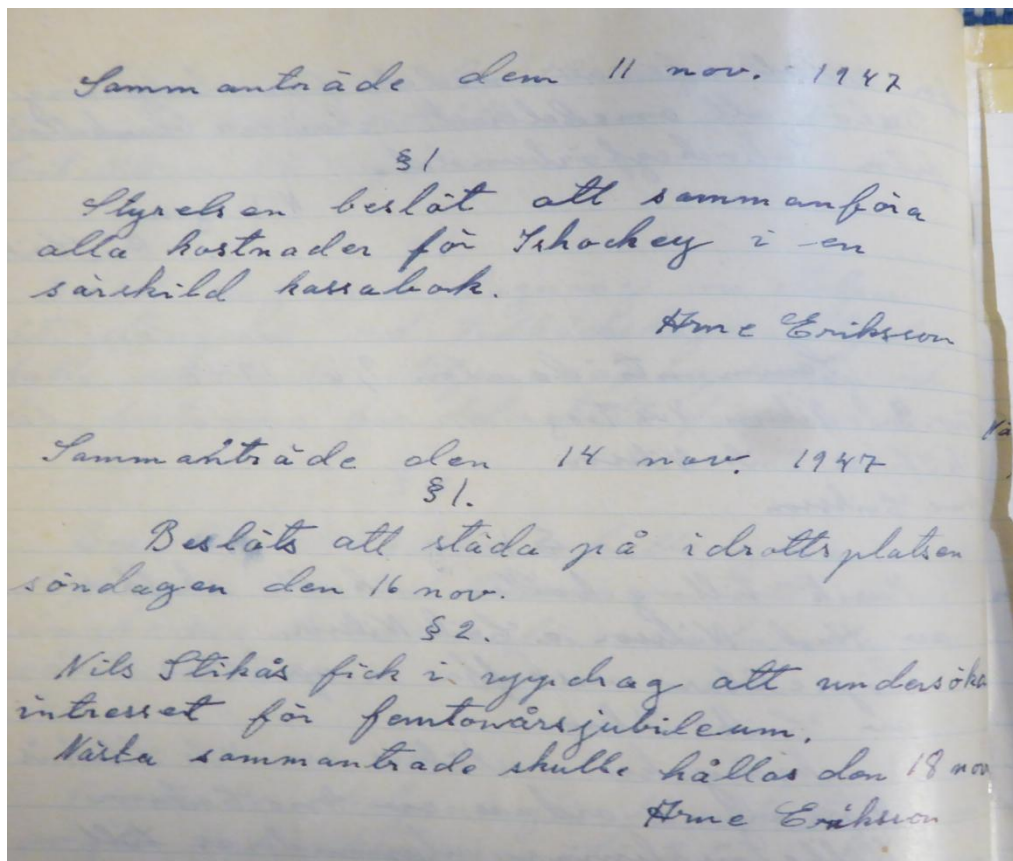 Sammanträde dem 11 nov. 1947
§1
Styrelsen beslöt att sammanföra
alla kostnader för Ishockey i en
särskild kassabok.
Arne Eriksson
Sammanträde den 14 nov. 1947
§1.
Beslöts att städa på idrottsplatsen
söndagen den 16 nov.
§2.
Nils Stikås fick i uppdrag att undersöka
intresset för femtonårsjubileum.
Nästa sammantrade skulle hållas den 18 nov
Arne Eriksson